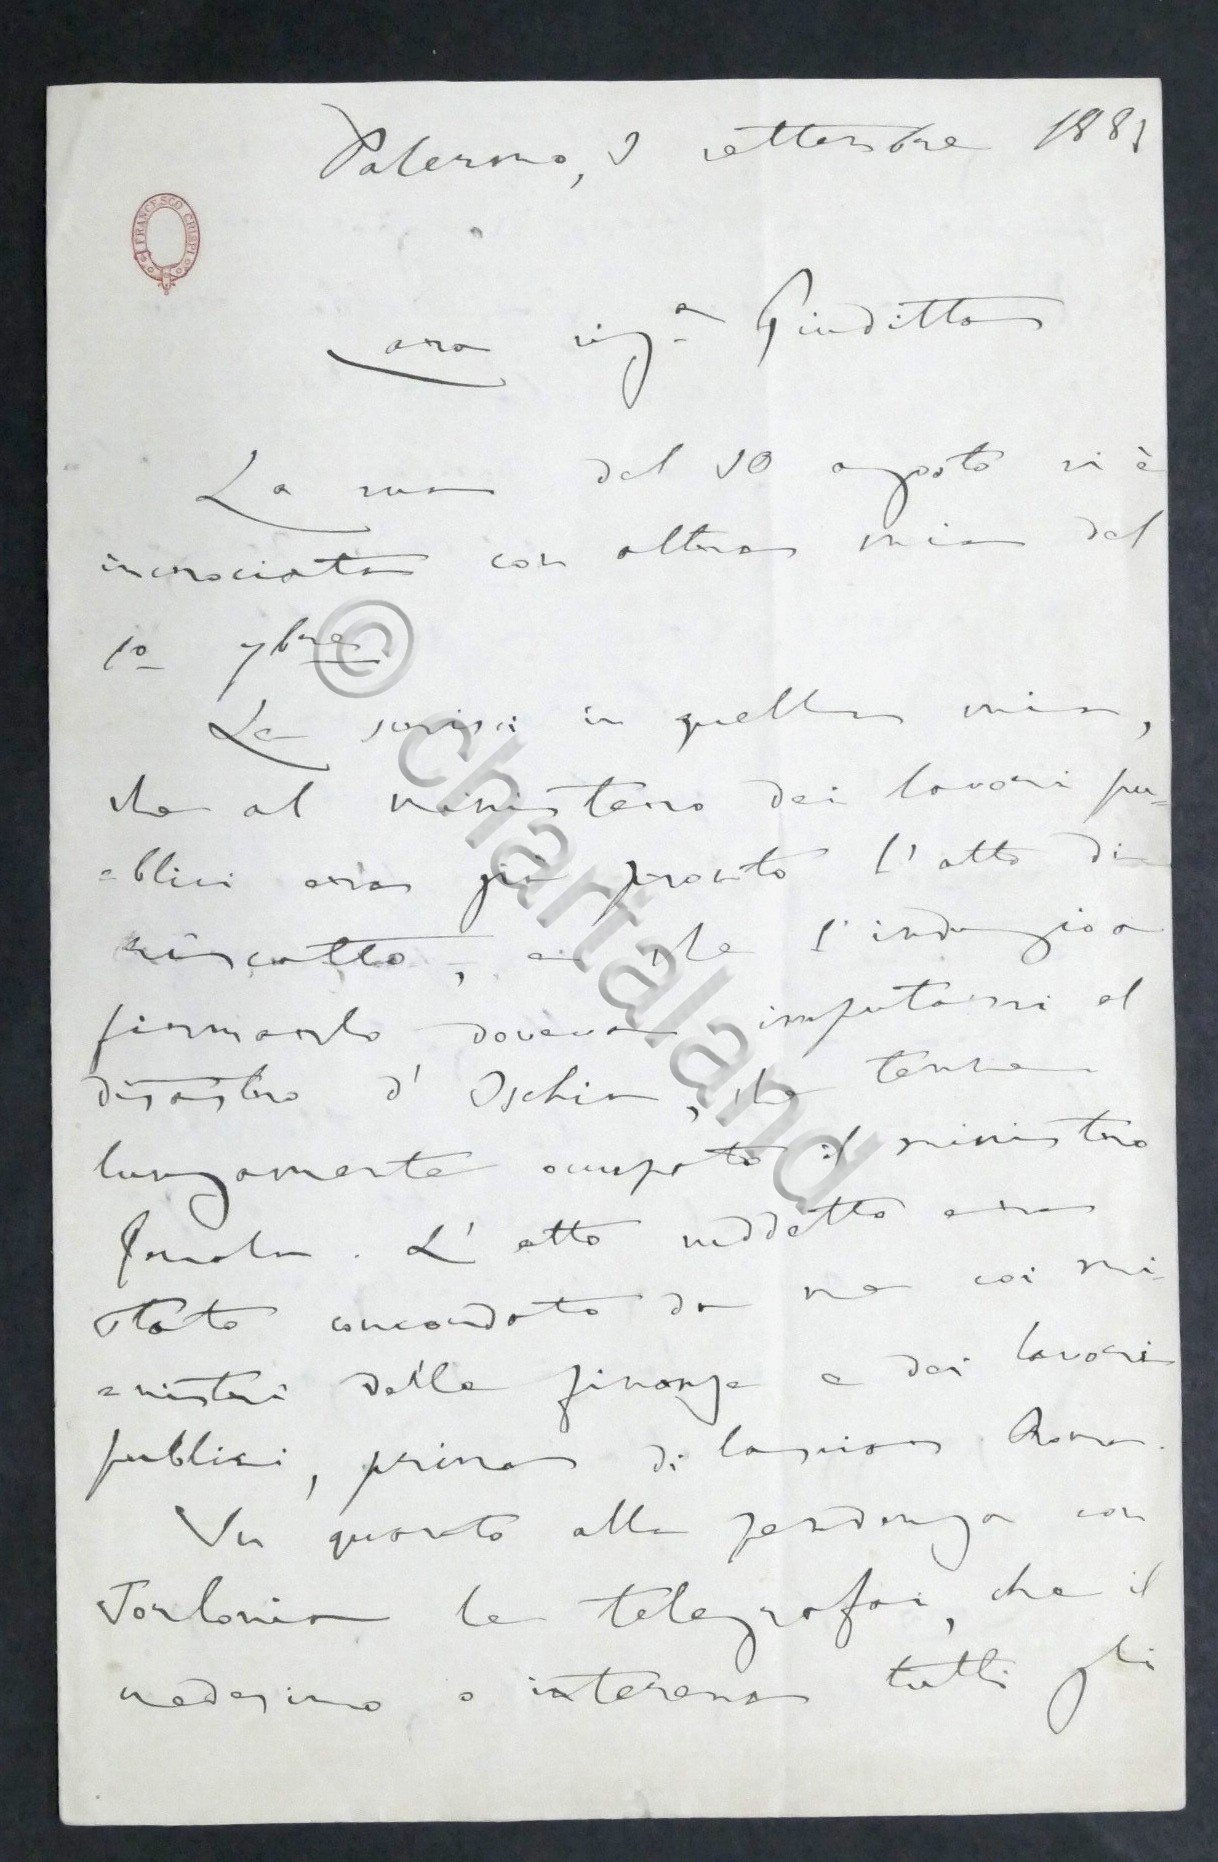 Palermo, 3 settembre 1883
FRANCESCO CRISPI
Cara sig.a Giuditta
La sua del 30 agosto si è
incrociata con altra mia del
1o 7bre
Le scrissi in quella mia,
che al ministero dei lavori pu=
=blici era già pronto l'atto di
riscatto, e che l'indugio a
firmarlo doveva imputarsi al
disastro d'Ischia, che tenne
lungamente occupato il ministro
Genala. L'atto suddetto era
stato concordato da me coi mi=
=nisteri delle finanze e dei lavori
publici, prima di lasciar Roma.
In quanto alla pendenza con
Torlonia le telegrafai, che il
medesimo o interessa tutti gli
© chartaland